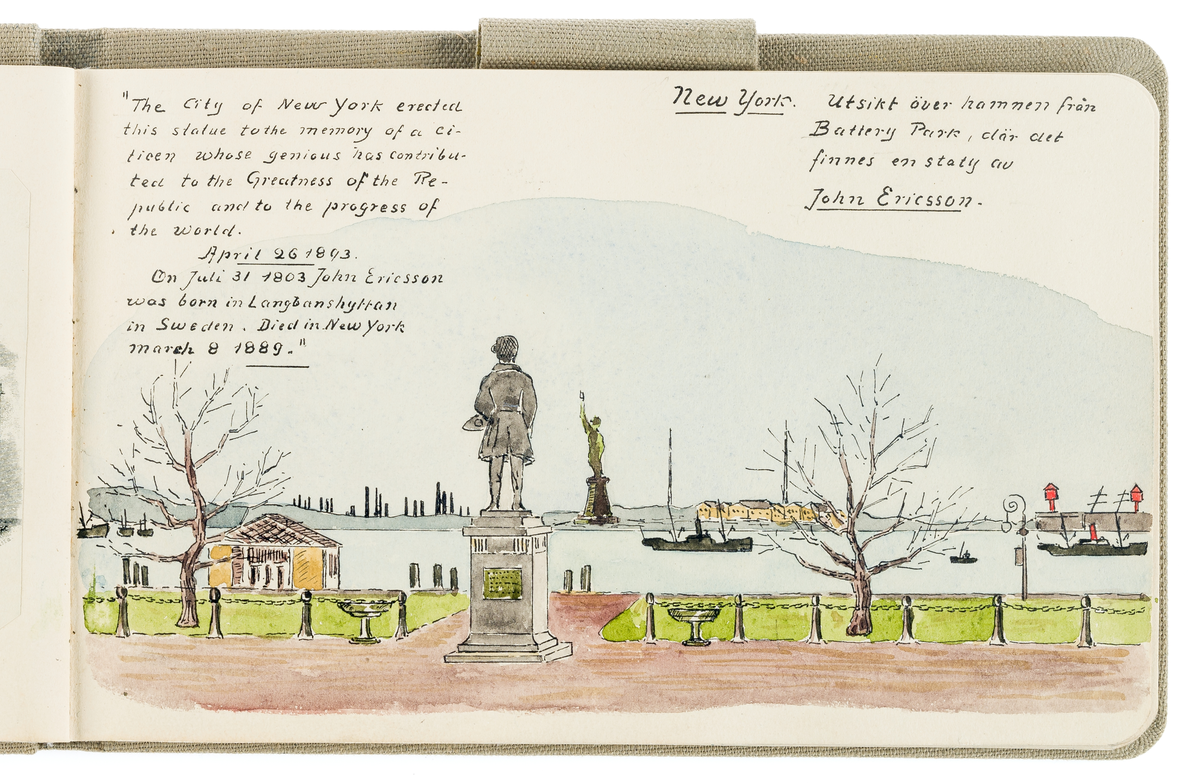 "The City of New York erected
this statue to the memory of a ci-
ticen whose genious has contribu-
ted to the Greatness of the Re-
public and to the progress of
the world.
April 26 1893.
On Juli 31 1803 John Ericsson
was born in Langbanshyttan
in Sweden. Died in New York
march 8 1889."
New York. Utsikt över hamnen från
Battery Park, där det
finnes en staty av
John Ericsson.